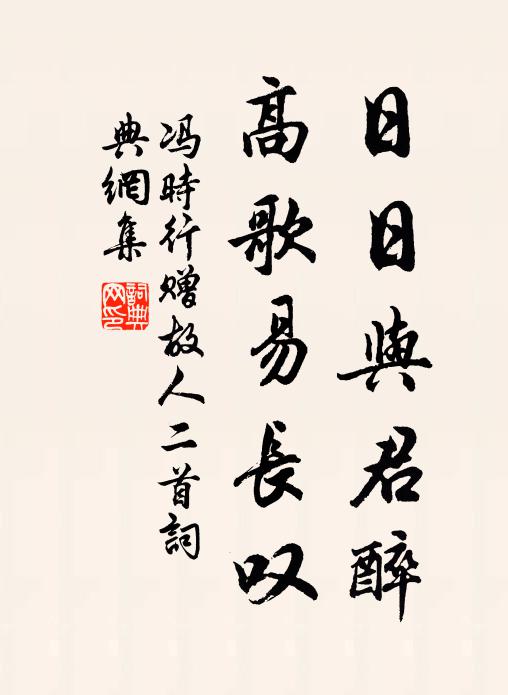 日日與君醉
高歌易長叹
冯時行赠故人二首詞
典網集
詞典网印